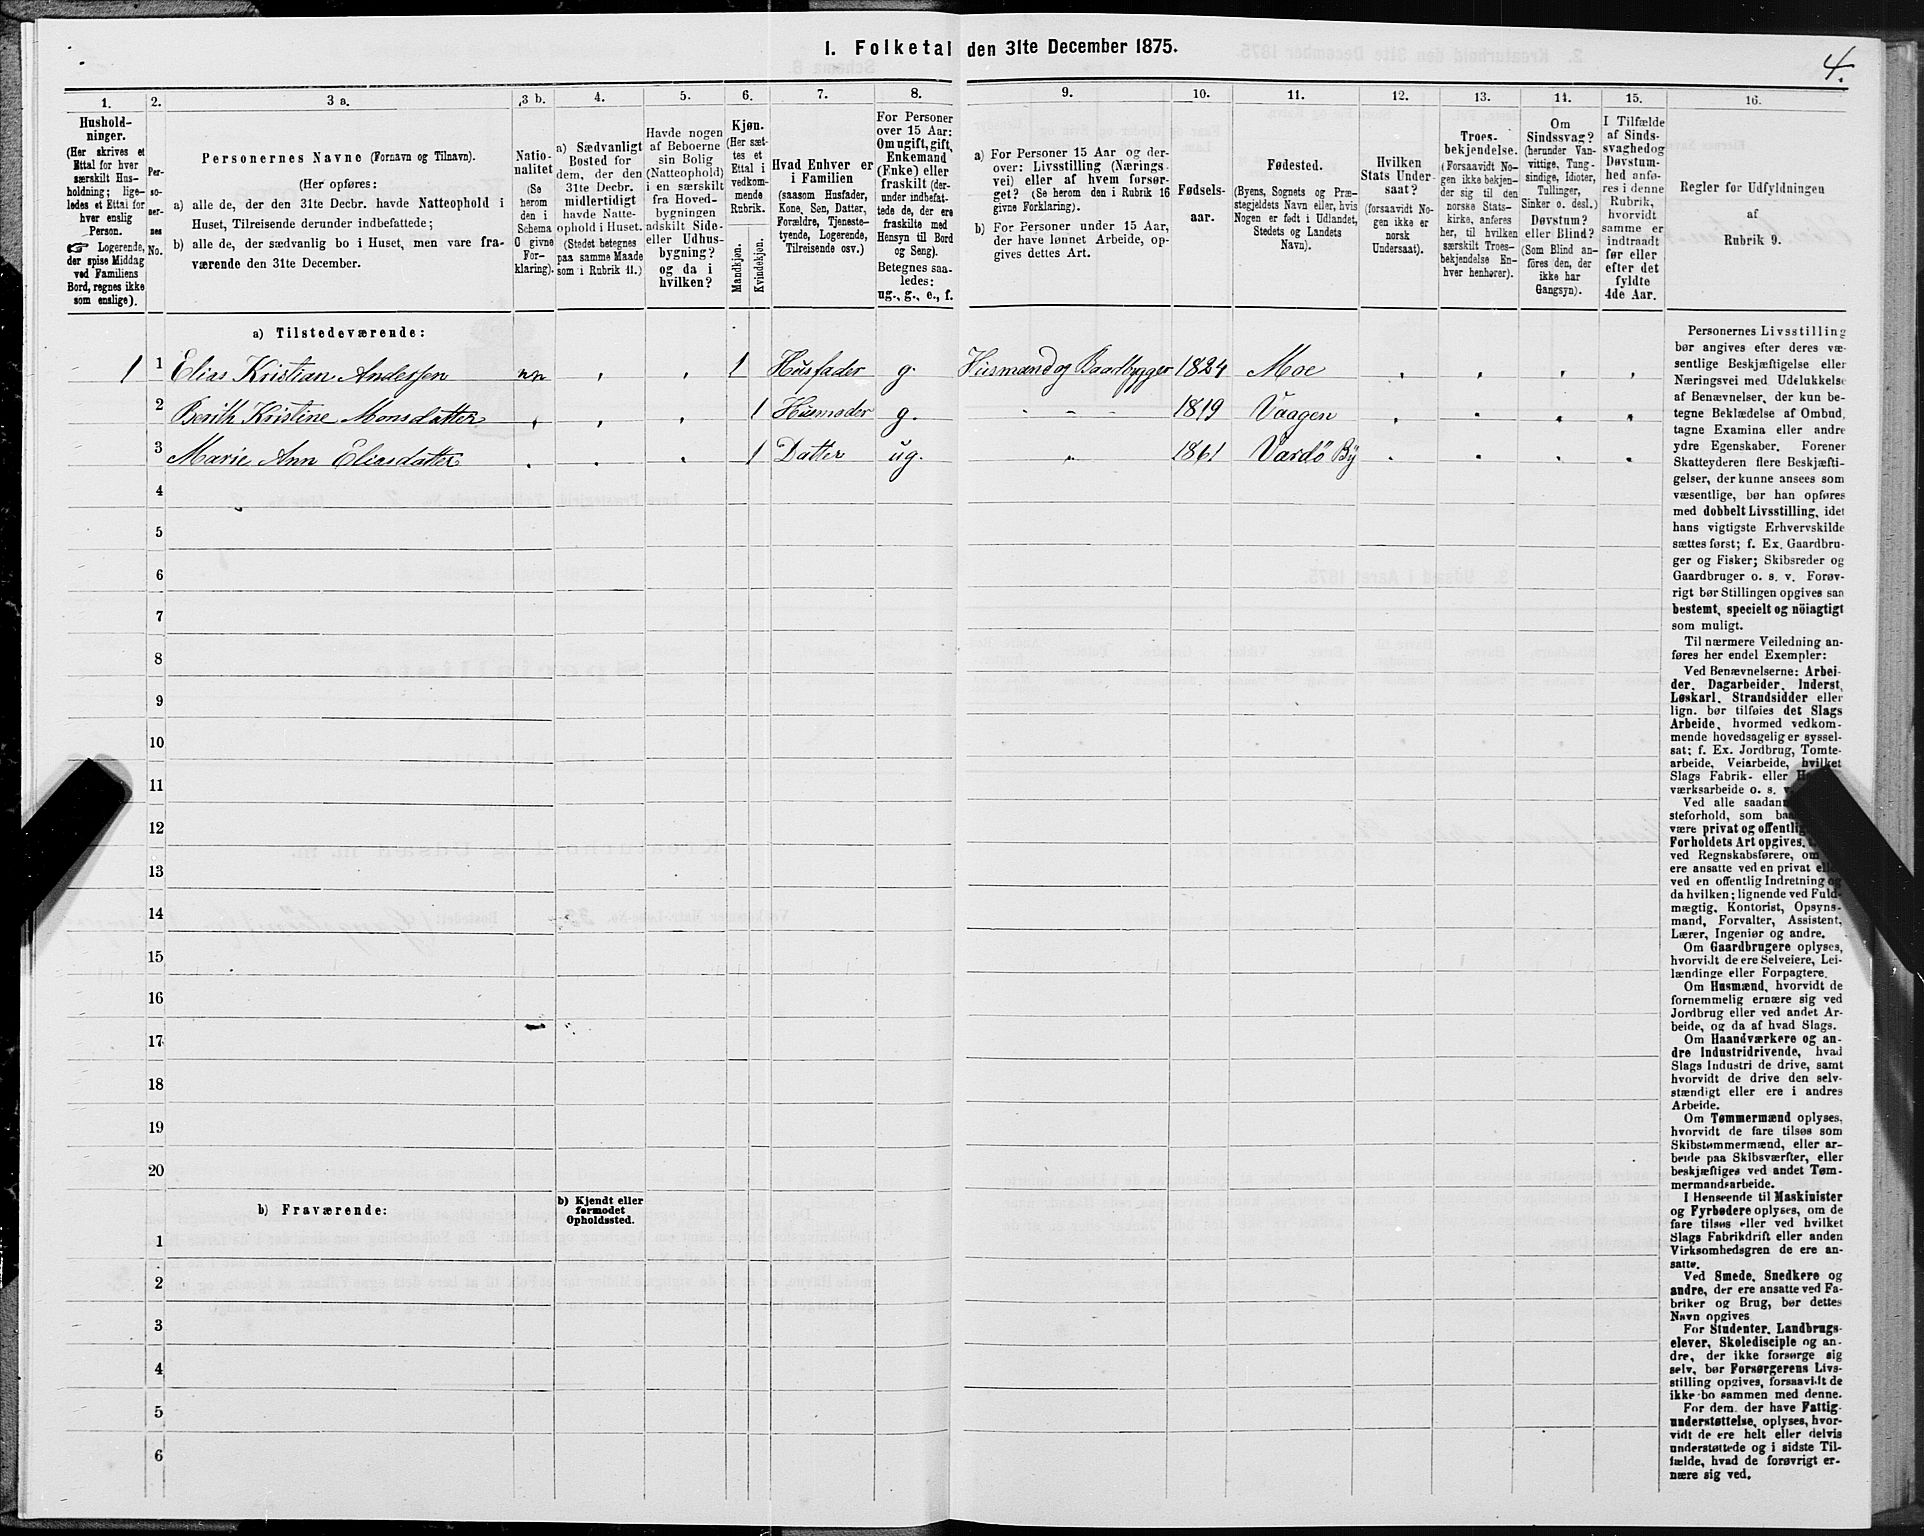 1. Folketal den 31te December 1875.
4.
1.
2.
3 a.
3 b.
4.
5.
6.
7.
8.
9.
10.
11.
12.
13.
14.
15.
16.
Hushold-
ninger.
(Her skrives et
Ettal for hver
særskilt Hus-
holdning; lige-
ledes et Ettal for
hver enslig
Person.
☞ Logerende,
der spise Middag
ved Familiens
Bord, regnes ikke
som enslige).
Per-
so-
ner-
nes
No.
Personernes Navne (Fornavn og Tilnavn).
(Her opføres:
a) alle de, der den 31te Decbr. havde Natteophold i
Huset, Tilreisende derunder indbefattede;
b) alle de, der sædvanlig bo i Huset, men vare fra-
værende den 31te December.
Natio-
nalitet
(Se
herom
den i
Schema
C givne
For-
klaring).
a) Sædvanligt
Bosted for
dem, der den
31te Decbr.
midlertidigt
havde Natte-
ophold i Huset.
(Stedet betegnes
paa samme Maade
som i Rubrik 11.)
Havde nogen
af Beboerne
sin Bolig
(Natteophold)
i en særskilt
fra Hoved-
bygningen
adskilt Side-
eller Udhus-
bygning?
og da i
hvilken?
Kjøn.
(Her sæt-
tes et
Ettal i
vedkom-
mende
Rubrik.
Mandkjøn.
Kvindekjøn.
Hvad Enhver er
i Familien
(saasom Husfader,
Kone, Søn, Datter,
Forældre, Tjeneste-
tyende, Logerende,
Tilreisende osv.)
For Personer
over 15 Aar:
Om ugift, gift,
Enkemand
(Enke) eller
fraskilt (der-
under indbefat-
tede de, der ere
fraskilte med
Hensyn til Bord
og Seng).
Betegnes saa-
ledes:
ug., g., e., f.
a) For Personer 15 Aar og der-
over: Livsstilling (Nærings-
vei) eller af hvem forsør-
get? (Se herom den i Rubrik 16
givne Forklaring).
b) For Personer under 15 Aar,
der have lønnet Arbeide, op-
gives dettes Art.
Fødsels-
aar.
Fødested.
(Byens, Sognets og Præ-
stegjeldets Navn eller, hvis
Nogen er født i Udlandet,
Stedets og Landets
Navn).
Hvilken
Stats Under-
saat?
(forsaavidt No-
gen ikke er
norsk
Undersaat).
Troes-
bekjendelse.
(Forsaavidt No-
gen ikke bekjen-
der sig til den
norske Stats-
kirke, anføres
her, til hvilken
særskilt Troes-
bekjendelse En-
hver henhører).
Om
Sindssvag?
(herunder Van-
vittige, Tung-
sindige, Idioter,
Tullinger,
Sinker o. desl.)
Døvstum?
eller Blind?
(Som Blind an-
føres den, der
ikke har
Gangsyn).
I Tilfælde
af Sinds-
svaghed og
Døvstum-
hed anfø-
res i denne
Rubrik,
hvorvidt
samme er
indtraadt
før eller
efter det
fyldte
4de Aar.
Regler for Udfyldningen
af
Rubrik 9.
a) Tilstedeværende:
1 1 Elias Kristian Andersen nn " " 1 Husfader g. Husmand og Baadbygger 1824 Moe " " " "
2 Berith Kristine Monsdatter " " " 1 Husmoder g. " - - 1819 Vaagen " " " "
3 Marie Ann Eliasdatter " " " 1 Datter ug. " 1861 Vardö By " " " "
4
5
6
7
8
9
10
11
12
13
14
15
16
17
18
19
20
b) Fraværende:
b) Kjendt eller
formodet
Opholdssted.
1
2
3
4
5
6
Personernes Livsstilling
bør angives efter deres væ-
sentlige Beskjæftigelse eller
Næringsvei med Udelukkelse
af Benævnelser, der kun be-
tegne Beklædelse af Ombud,
tagne Examina eller andre
ydre Egenskaber. Forener
Skatteyderen flere Beskjæfti-
gelser, der kunne ansees som
væsentlige, bør han opføres
med dobbelt Livsstilling, idet
hans vigtigste Erhvervskilde
sættes først; f. Ex. Gaardbru-
ger og Fisker; Skibsreder og
Gaardbruger o. s. v. Forøv-
rigt bør Stillingen opgives saa
bestemt, specielt og nöiagtigt
som muligt.
Til nærmere Veiledning an-
føres her endel Exempler:
Ved Benævnelserne: Arbei-
der, Dagarbeider, Inderst,
Løskarl, Strandsidder eller
lign. bør tilføies det Slags
Arbeide, hvormed vedkom-
mende hovedsagelig er syssel-
sat; f. Ex. Jordbrug, Tomte-
arbeide, Veiarbeide, hvilket
Slags Fabrik- eller
værksarbeide o. s. v.
Ved alle saadan
steforhold, som
være privat og offentlig
Forholdets Art opgives,
ved Regnskabsførere, om
ere ansatte ved en privat
ved en offentlig Indretning og
da hvilken; lignende ved Fuld-
mægtig, Kontorist, Opsyns-
mand, Forvalter, Assistent,
Lærer, Ingeniør og andre.
Om Gaardbrugere oplyses,
hvorvidt de ere Selveiere, Lei-
lændinge eller Forpagtere.
Om Husmænd, hvorvidt de
fornemmelig ernære sig ved
Jordbrug eller ved andet Ar-
beide, og da af hvad Slags.
Om Haandværkere og an-
dre Industridrivende, hvad
Slags Industri de drive, samt
hvorvidt de drive den selv-
stændigt eller ere i andres
Arbeide.
Om Tømmermænd oplyses,
hvorvidt de fare tilsøs som
Skibstømmermænd, eller ar-
beide paa Skibsværfter, eller
beskjæftiges ved andet Tøm-
mermandsarbeide.
I Henseende til Maskinister
og Fyrbødere oplyses, om de
fare tilsøs eller ved hvilket
Slags Fabrikdrift eller anden
Virksomhedsgren de ere an-
satte.
Ved Smede, Snedkere og
andre, der ere ansatte ved Fa-
briker og Brug, bør dettes
Navn opgives.
For Studenter, Landbrugs-
elever, Skoledisciple og an-
dre, der ikke forsørge sig
selv, bør Forsørgerens Livs-
stilling opgives, forsaavidt de
ikke bo sammen med denne.
For dem, der have Fattig-
understøttelse, oplyses, hvor-
vidt de ere helt eller delvis
understøttede og i sidste Til-
fælde, hvad de forøvrigt er-
nære sig ved.